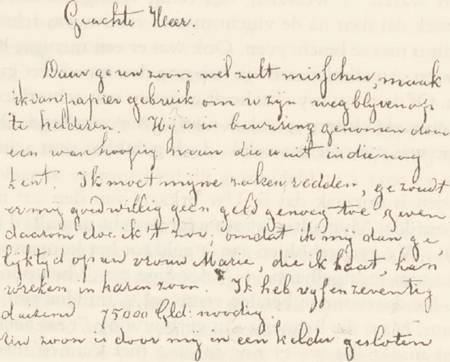 Geachte Heer.
Daar ge uw zoon wel zult misschen, maak
ik van papier gebruik om u zijn wegblyven op
te helderen. Hij is in bewaring genomen door
een wanhoopig man die u uit indie nog
kent. Ik moet mijne zaken redden, ge zoudt
er my goedwillig geen geld genoeg toe geven
daarom doe ik 't zoo, omdat ik mij dan ge
lijktyd op uw vrouw Marie, die ik haat, kan
wreken in haren zoon. Ik heb vyf en zeventig
duizend 75000 Gld: noodig.
Uw zoon is door my in een kelder gesloten